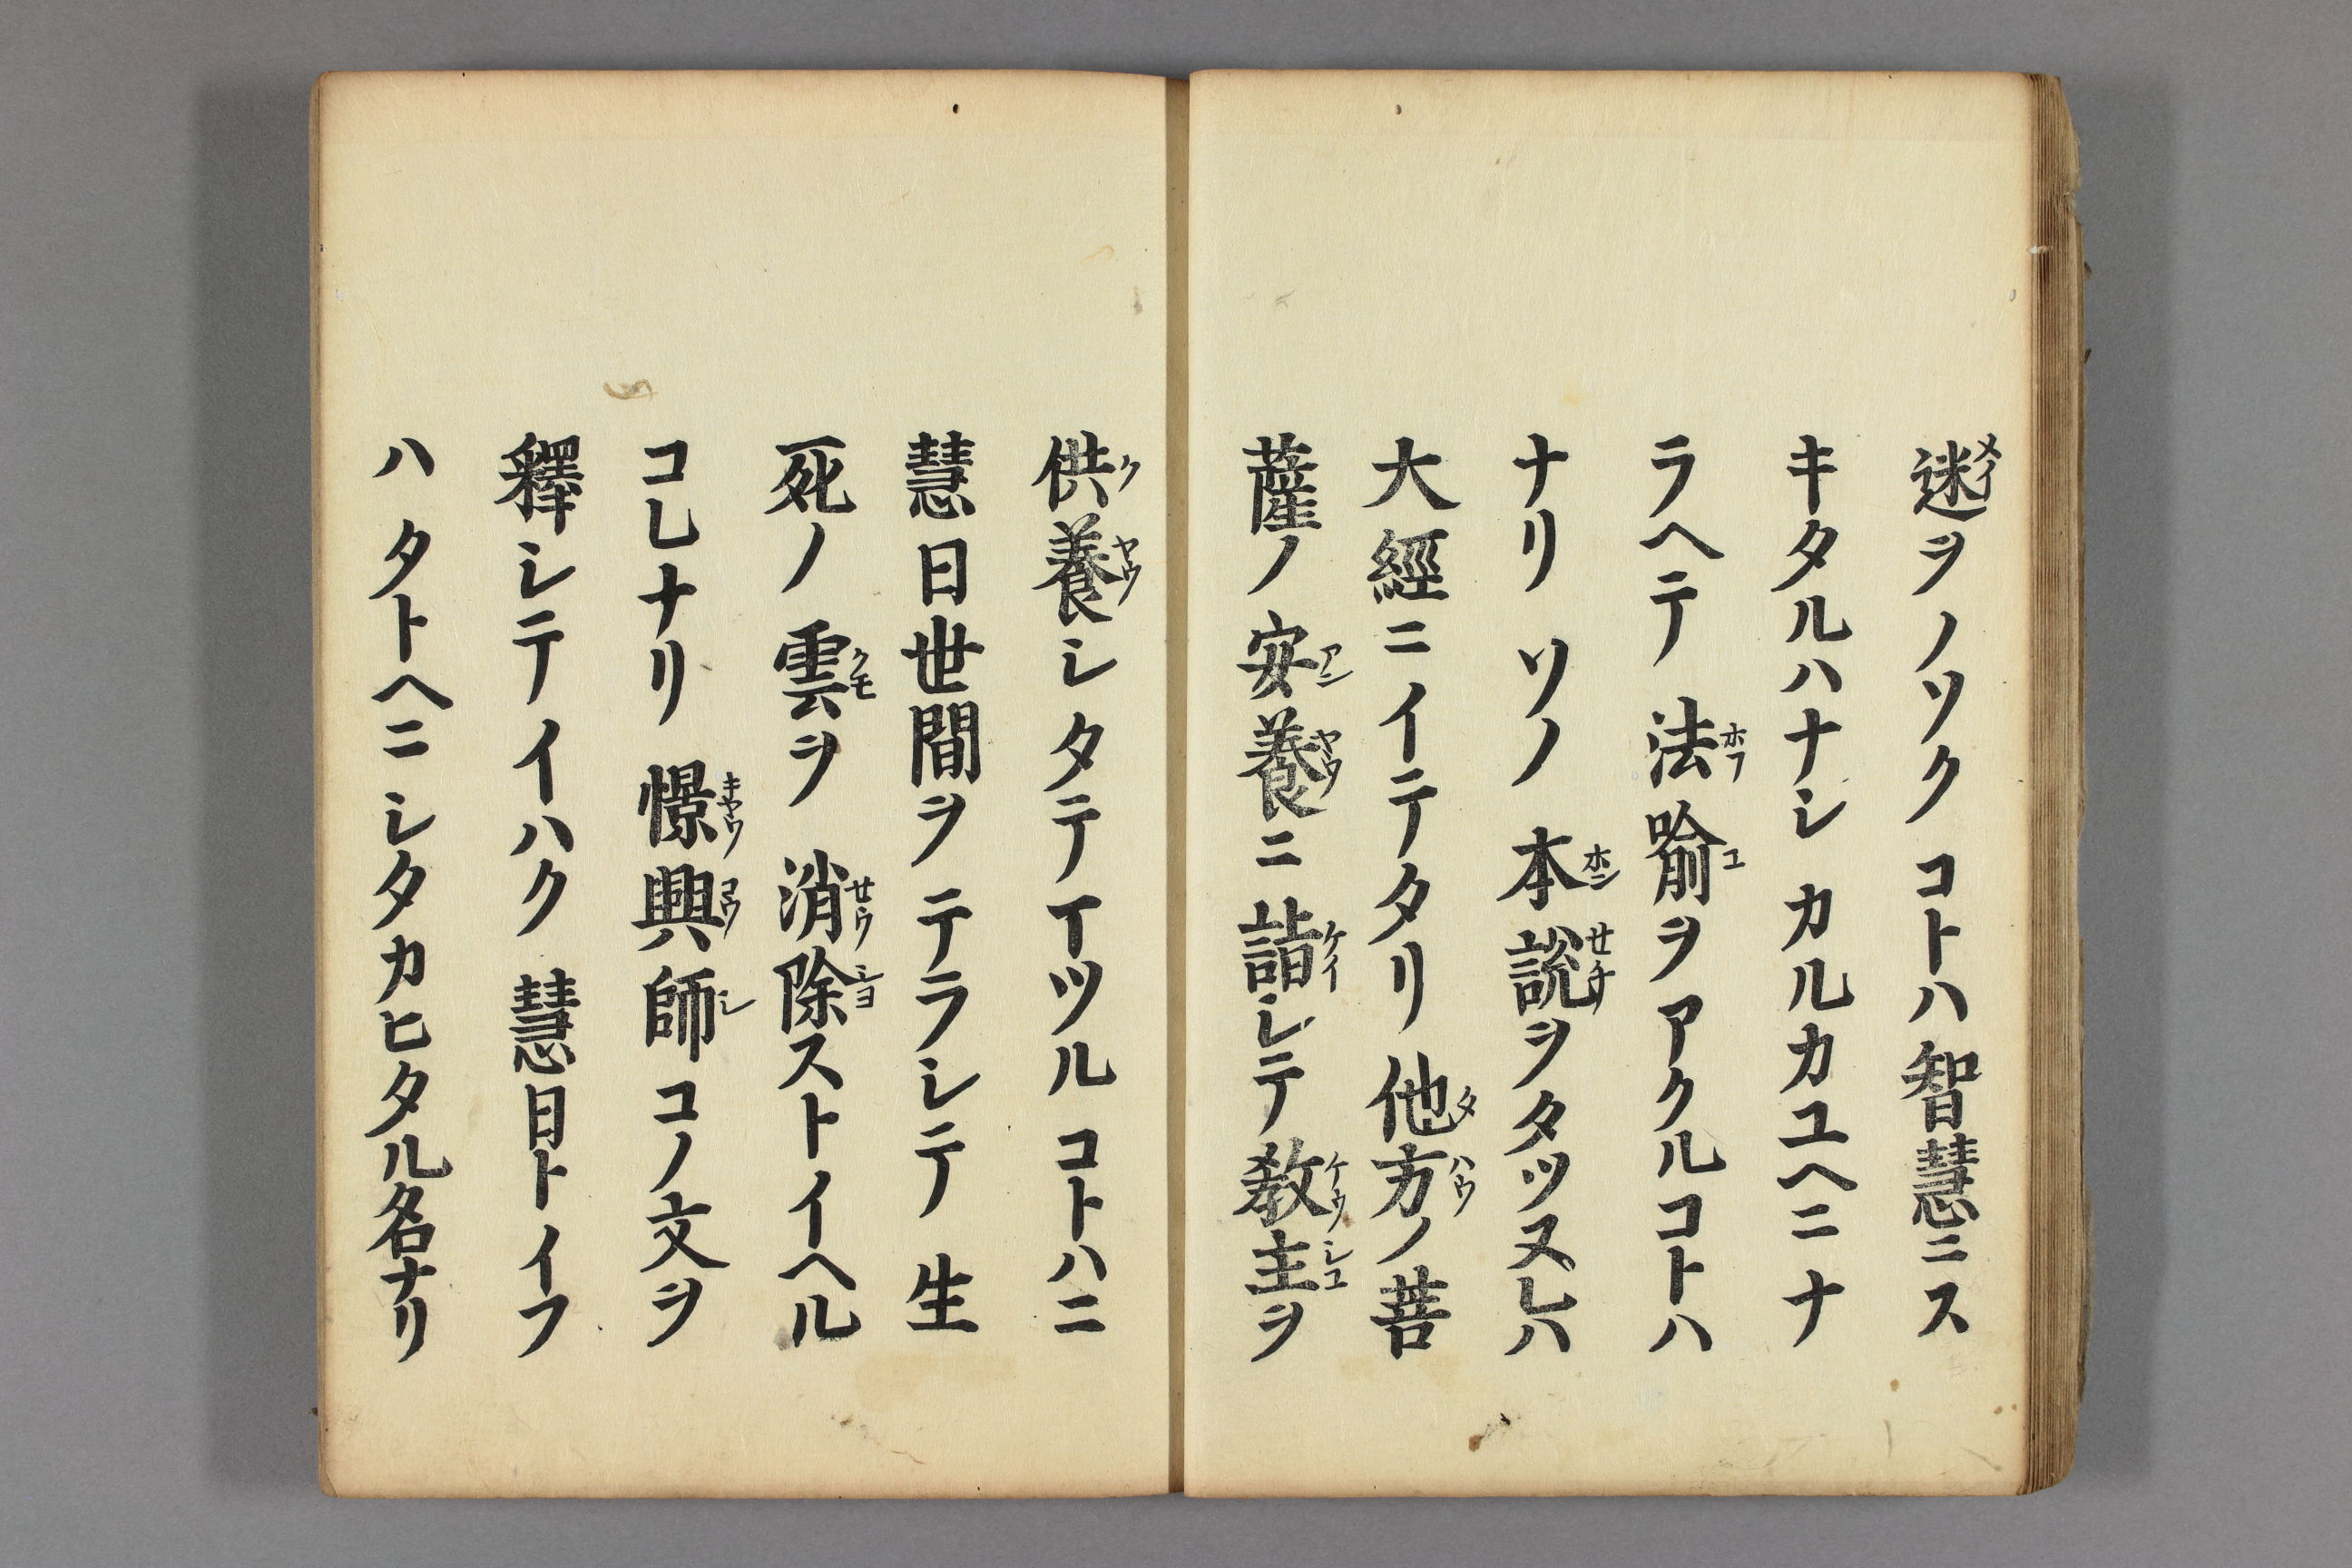 迷ヲノソクコトハ智慧ニス
キタルハナシカルカユヘニナ
ラヘテ法喩ヲアクルコトハ
ナリソノ本説ヲタツヌレハ
大經ニイテタリ他方ノ菩
薩ノ安養ニ詣シテ教主ヲ
供養シタテイツルコトハニ
慧日世間ヲテラシテ生
死ノ雲ヲ消除ストイヘル
コレナリ憬興師コノ文ヲ
釋シテイハク慧日トイフ
ハタトヘニシタカヒタル名ナリ